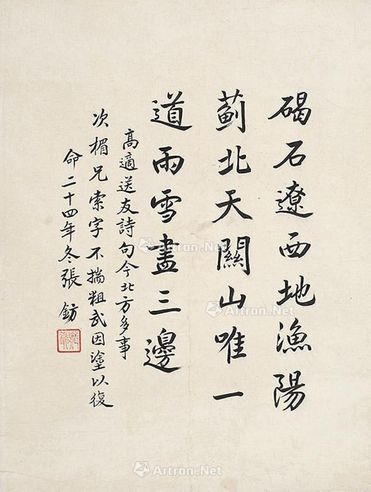 碣石遼西地漁陽
薊北天關山唯一
道雨雪盡三邊
高適送友詩句今北方多事
次楣兄索字不揣粗武因塗以復
命二十四年冬張鈁
Artron.Net
Artron.Net